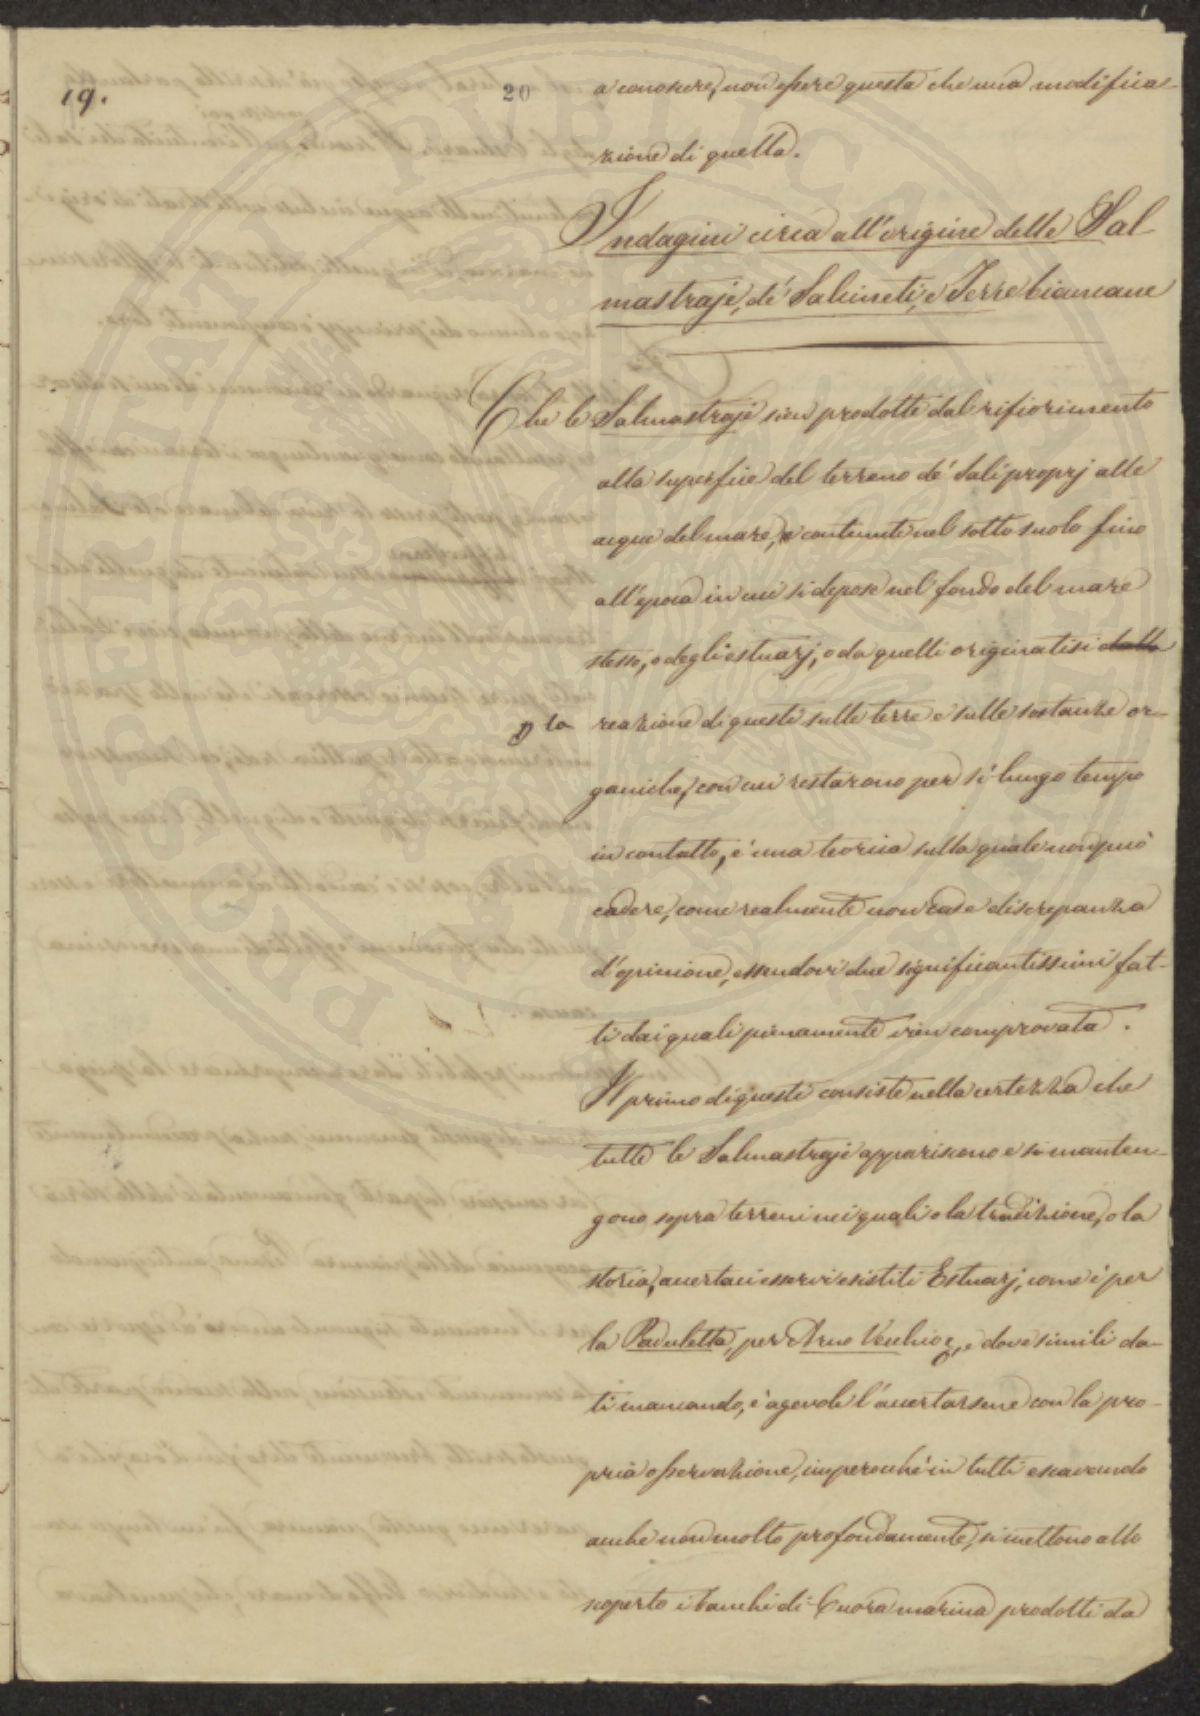 19.
20
a conoscere, non essere questa che una modifica-
zione di quella.
Indagini circa all'origine delle Sal
mastraje, de' Salineti, e Terre biancane
Che le Salmastraje sien prodotte dal rifiorimento
alla superficie del terreno de' Sali proprj alle
acque del mare, e contenute nel sotto suolo fino
all'epoca in cui si depose nel fondo del mare
stesso, o degli estuarj, o da quelli originatisi dalla
p la reazione di questi sulle terre e sulle sostanze or-
ganiche, con cui restarono per sì lungo tempo
in contatto, è una teoria sulla quale non può
cadere, come realmente non cade discrepanza
d'opinione, essendovi due significantissimi fat-
ti dai quali pienamente vien comprovata.
Il primo di questi consiste nella certezza che
tutte le Salmastraje appariscono e si manten-
gono sopra terreni nei quali o la tradizione, o la
storia, accertaci esservi esistiti Estuarj, come è per
la Paduletta, per Arno Vecchio &, e dove simili da-
ti mancando, è agevole l'accertarsene con la pro-
pria osservazione, imperocchè in tutti escavando
anche non molto profondamente, si mettono allo
scoperto i banchi di Cuora marina prodotti da